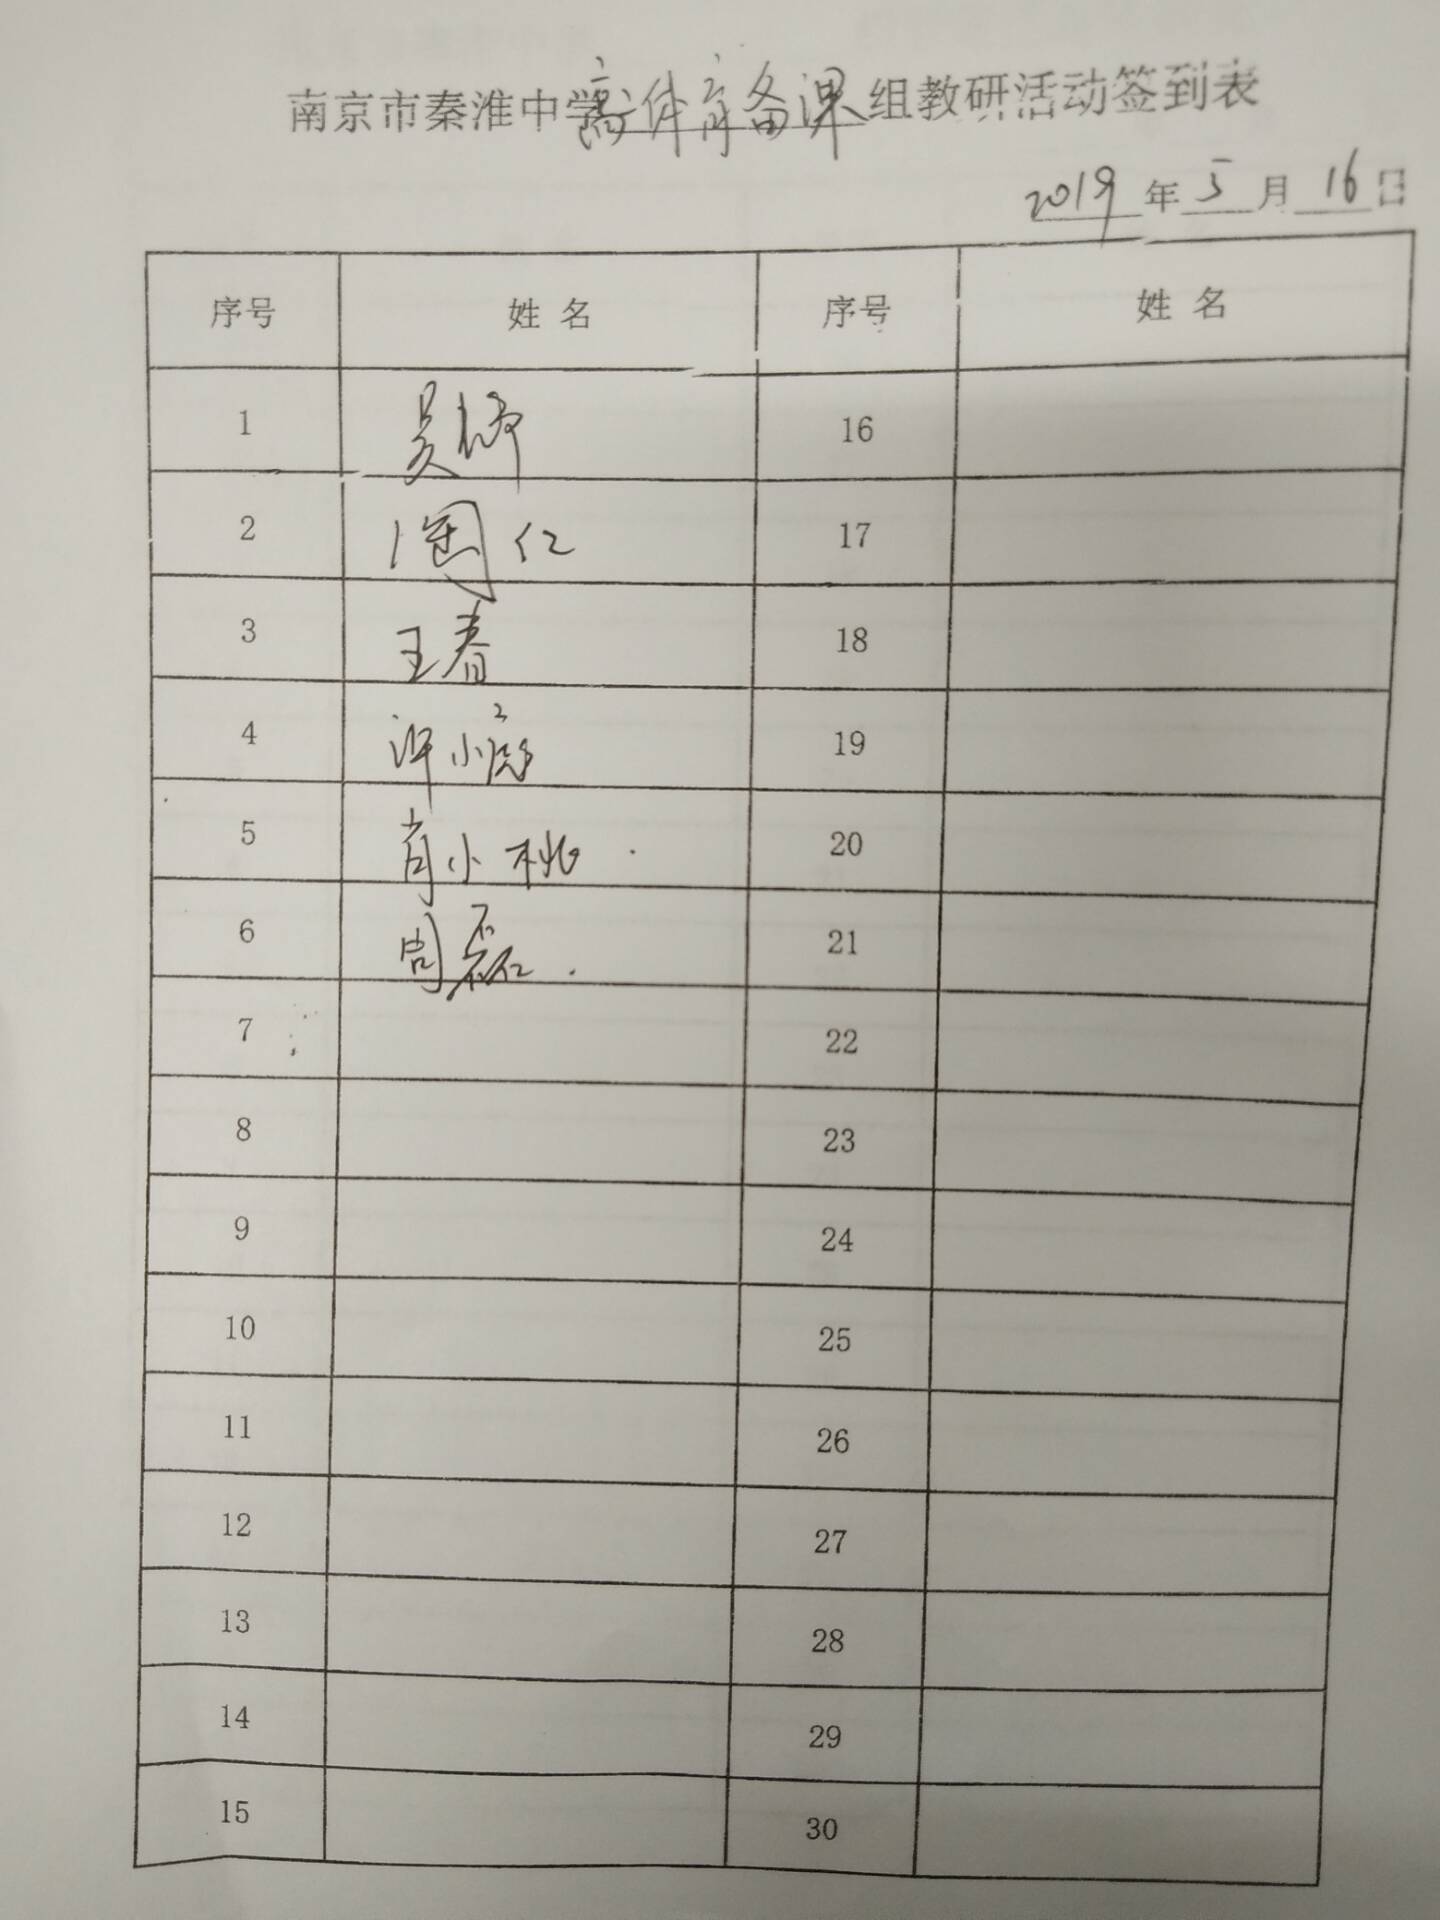 南京市秦淮中学高一体育备课组教研活动签到表
2019年5月16日
序号 姓名 序号 姓名
1 吴 16
2 仁 17
3 王春 18
4 许小 19
5 肖小桃 20
6 周磊 21
7 22
8 23
9 24
10 25
11 26
12 27
13 28
14 29
15 30